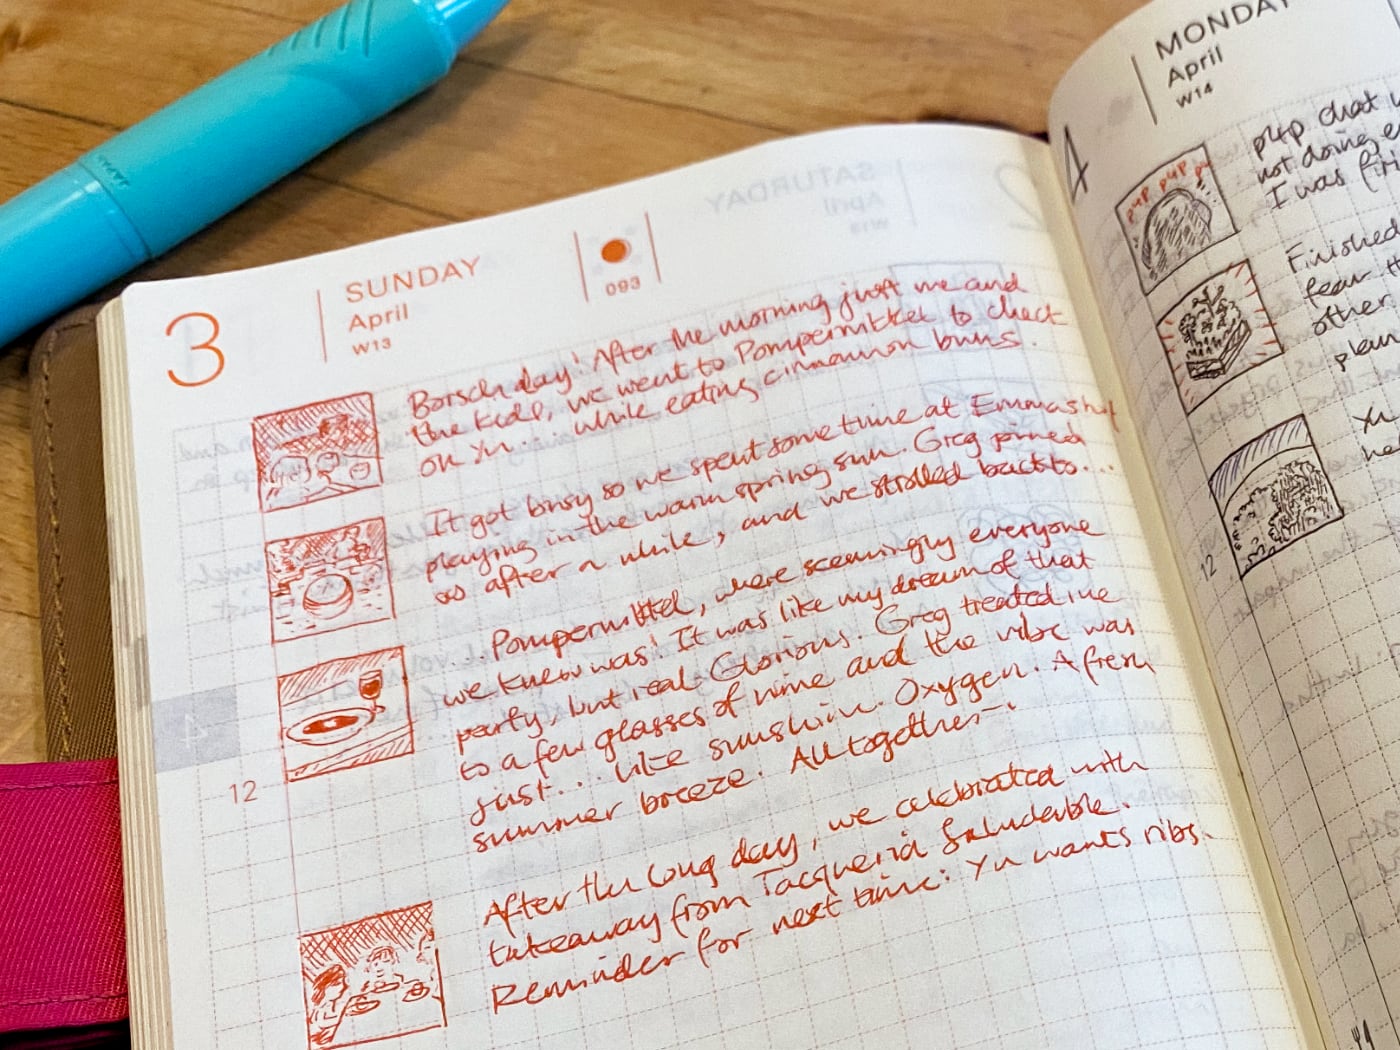 3
SUNDAY
April
W13
093
Borsch day! After the morning just me and
the kids, we went to Pompermittel to check
on Yu... while eating cinnamon buns.
It got busy so we spent some time at Emmas
playing in the warm spring sun. Greg joined
us after a while, and we strolled back to...
... Pompermittel, where seemingly everyone
we knew was! It was like my dream of that
party, but real. Glorious. Greg treated me
to a few glasses of wine and the vibe was
just... like sunshine. Oxygen. A fresh
summer breeze. All together-.
12
After the long day, we celebrated with
takeaway from Tacqueria Saludable.
Reminder for next time: Yu wants ribs.
4
MONDAY
April
W14
PYP PYP
PYP chat
not doing
I was
Finished
other
12
SATURDAY
April
W13
2
4
JAPAN